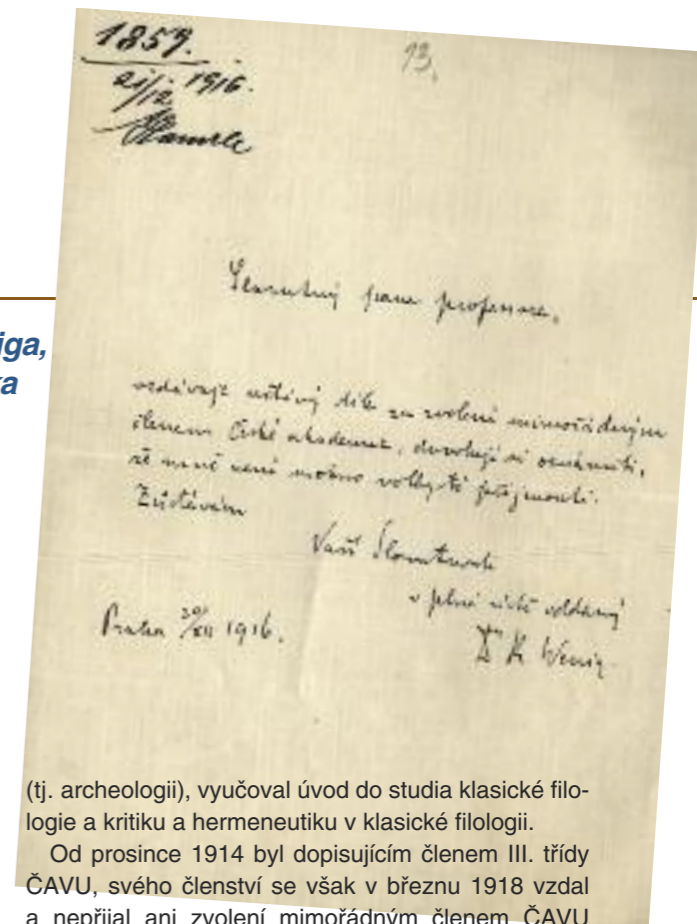 1859.
21/12 1916.
13.
Slovutný pane professore,
iga,
ka
vzdávaje uctivý dík za zvolení mimořádným
členem České akademie, dovoluji si oznámiti,
že mně není možno volby té přijmouti.
Zůstávám
Vaší Slovutnosti
v plné úctě oddaný
Dr K Wenig
Praha 20/XII 1916.
(tj. archeologii), vyučoval úvod do studia klasické filo-
logie a kritiku a hermeneutiku v klasické filologii.
Od prosince 1914 byl dopisujícím členem III. třídy
ČAVU, svého členství se však v březnu 1918 vzdal
a nepřijal ani zvolení mimořádným členem ČAVU